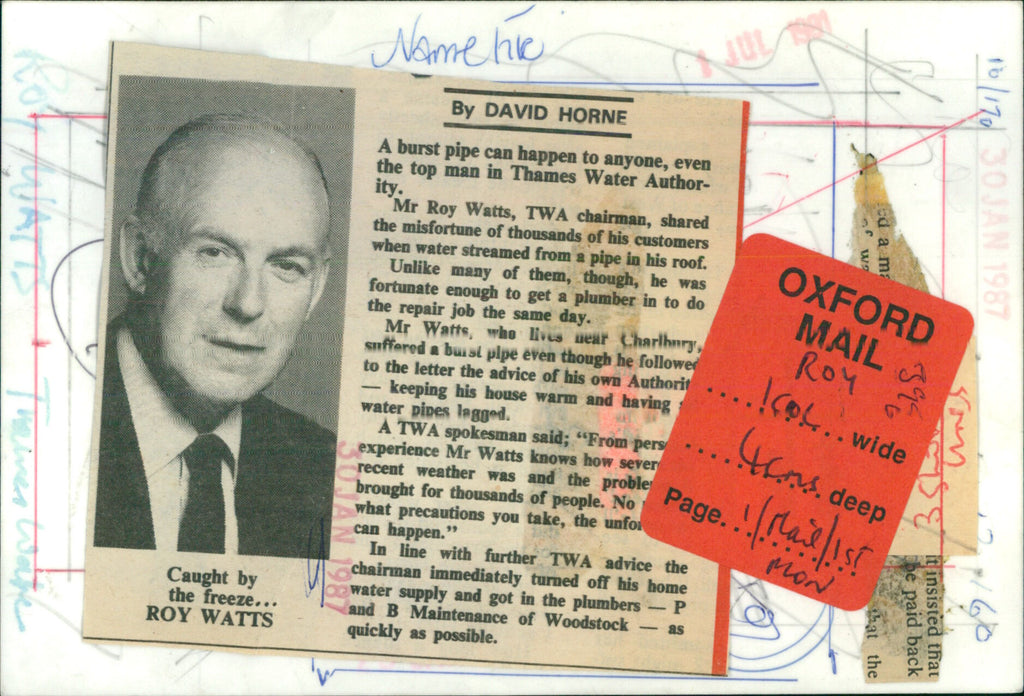 Name tie
1 JUL
10/170
ROY WATTS - Thames Water
30 JAN 1987
By DAVID HORNE
A burst pipe can happen to anyone, even
the top man in Thames Water Author-
ity.
Mr Roy Watts, TWA chairman, shared
the misfortune of thousands of his customers
when water streamed from a pipe in his roof.
Unlike many of them, though, he was
fortunate enough to get a plumber in to do
the repair job the same day.
Mr Watts, who lives near Charlbury,
suffered a burst pipe even though he followed
to the letter the advice of his own Authorit
— keeping his house warm and having
water pipes lagged.
A TWA spokesman said; “From pers
experience Mr Watts knows how severe
recent weather was and the proble
brought for thousands of people. No
what precautions you take, the unfor
can happen.”
In line with further TWA advice the
chairman immediately turned off his home
water supply and got in the plumbers — P
and B Maintenance of Woodstock — as
quickly as possible.
Caught by
the freeze...
ROY WATTS
30 JAN 1987
OXFORD
MAIL
ROY
.....1col...wide
.....4cms.deep
Page...1/Mail/1st
MON
ed a ma
it insisted that
be paid back
that the